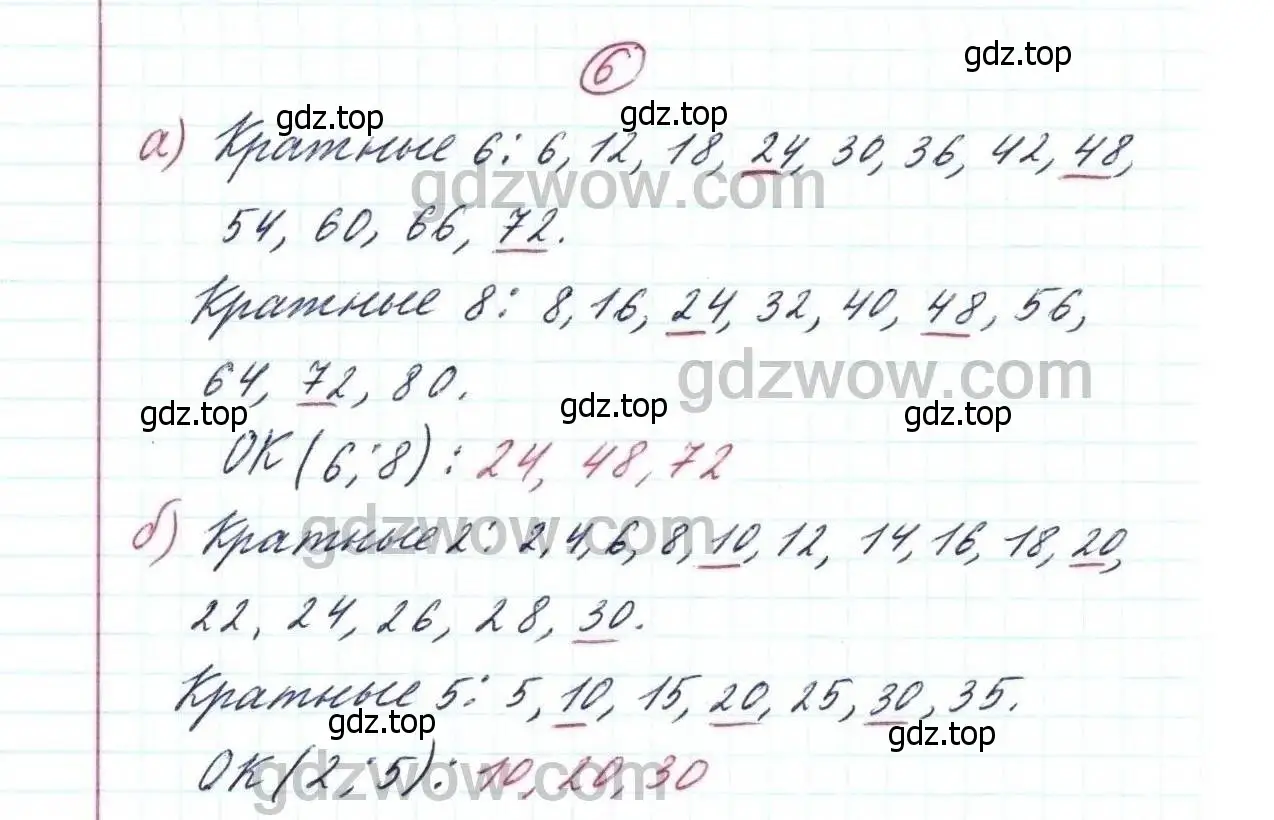 gdz.top
6
gdz.top gdz.top
а) Кратные 6: 6, 12, 18, 24, 30, 36, 42, 48,
gdzwow.com
54, 60, 66, 72.
Кратные 8: 8, 16, 24, 32, 40, 48, 56,
gdzwow.com
64, 72, 80.
gdz.top gdz.top gdz.top
ОК (6; 8): 24, 48, 72
gdzwow.com
б) Кратные 2: 2, 4, 6, 8, 10, 12, 14, 16, 18, 20,
22, 24, 26, 28, 30.
Кратные 5: 5, 10, 15, 20, 25, 30, 35.
gdz.top gdz.top
ОК (2; 5): 10, 20, 30
gdzwow.com